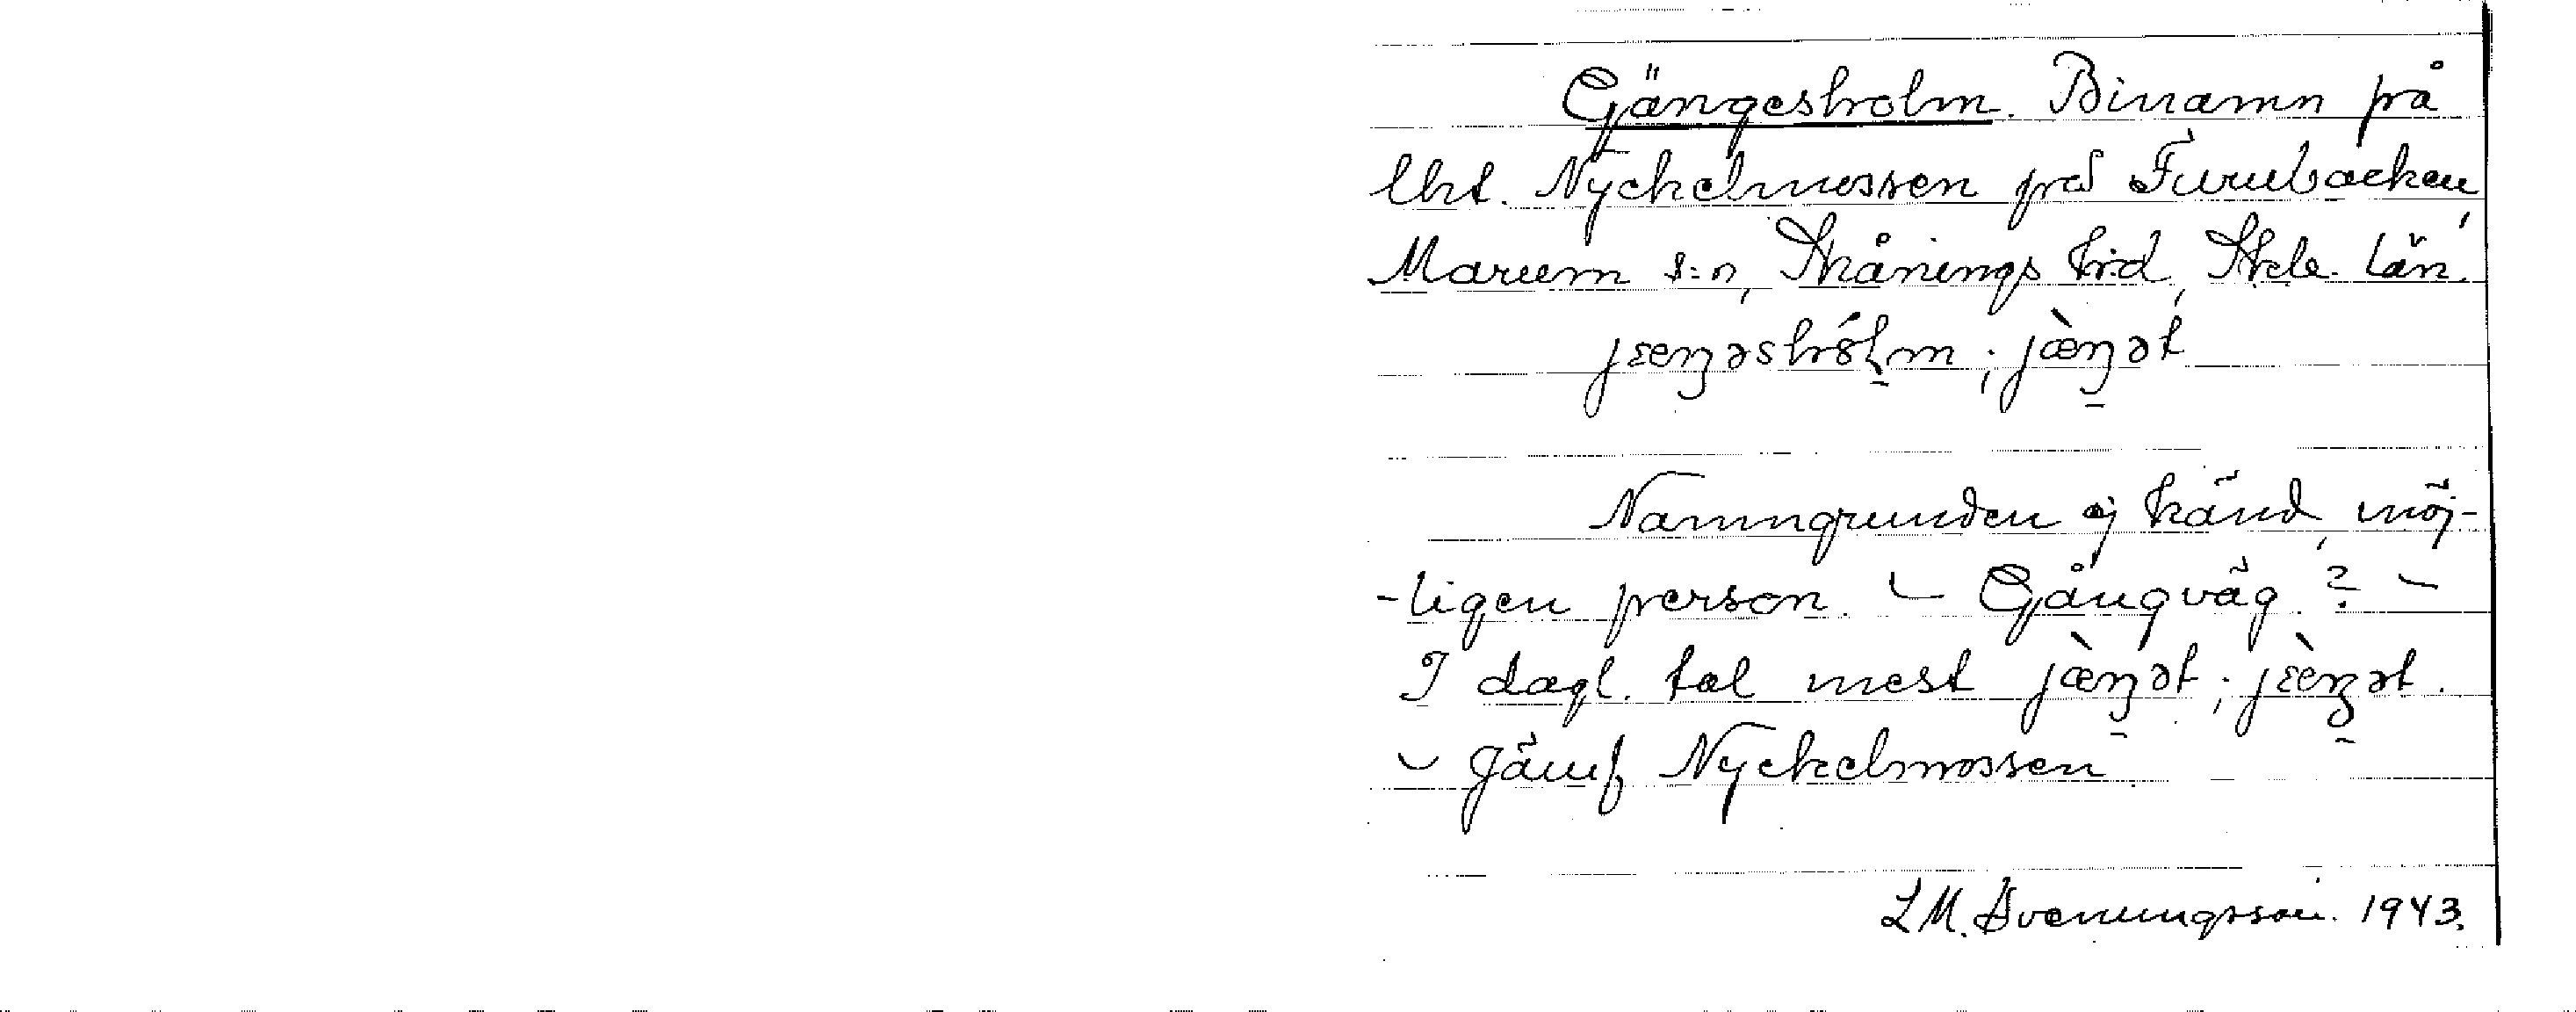 Gängesholm. Binamn på
lht. Nyckelmossen på Furubacken,
Marum s:n, Skånings hrd, Skbr. län.
jæŋəshól̠m; jæ̀ŋ̠ət
Namngrunden ej känd, möj-
-ligen person. – Gångväg? –
I dagl. tal mest jæ̀ŋ̠ət; jæ̀ŋ̠ət.
– Jämf Nyckelmossen
L M. Svenungsson. 1943.